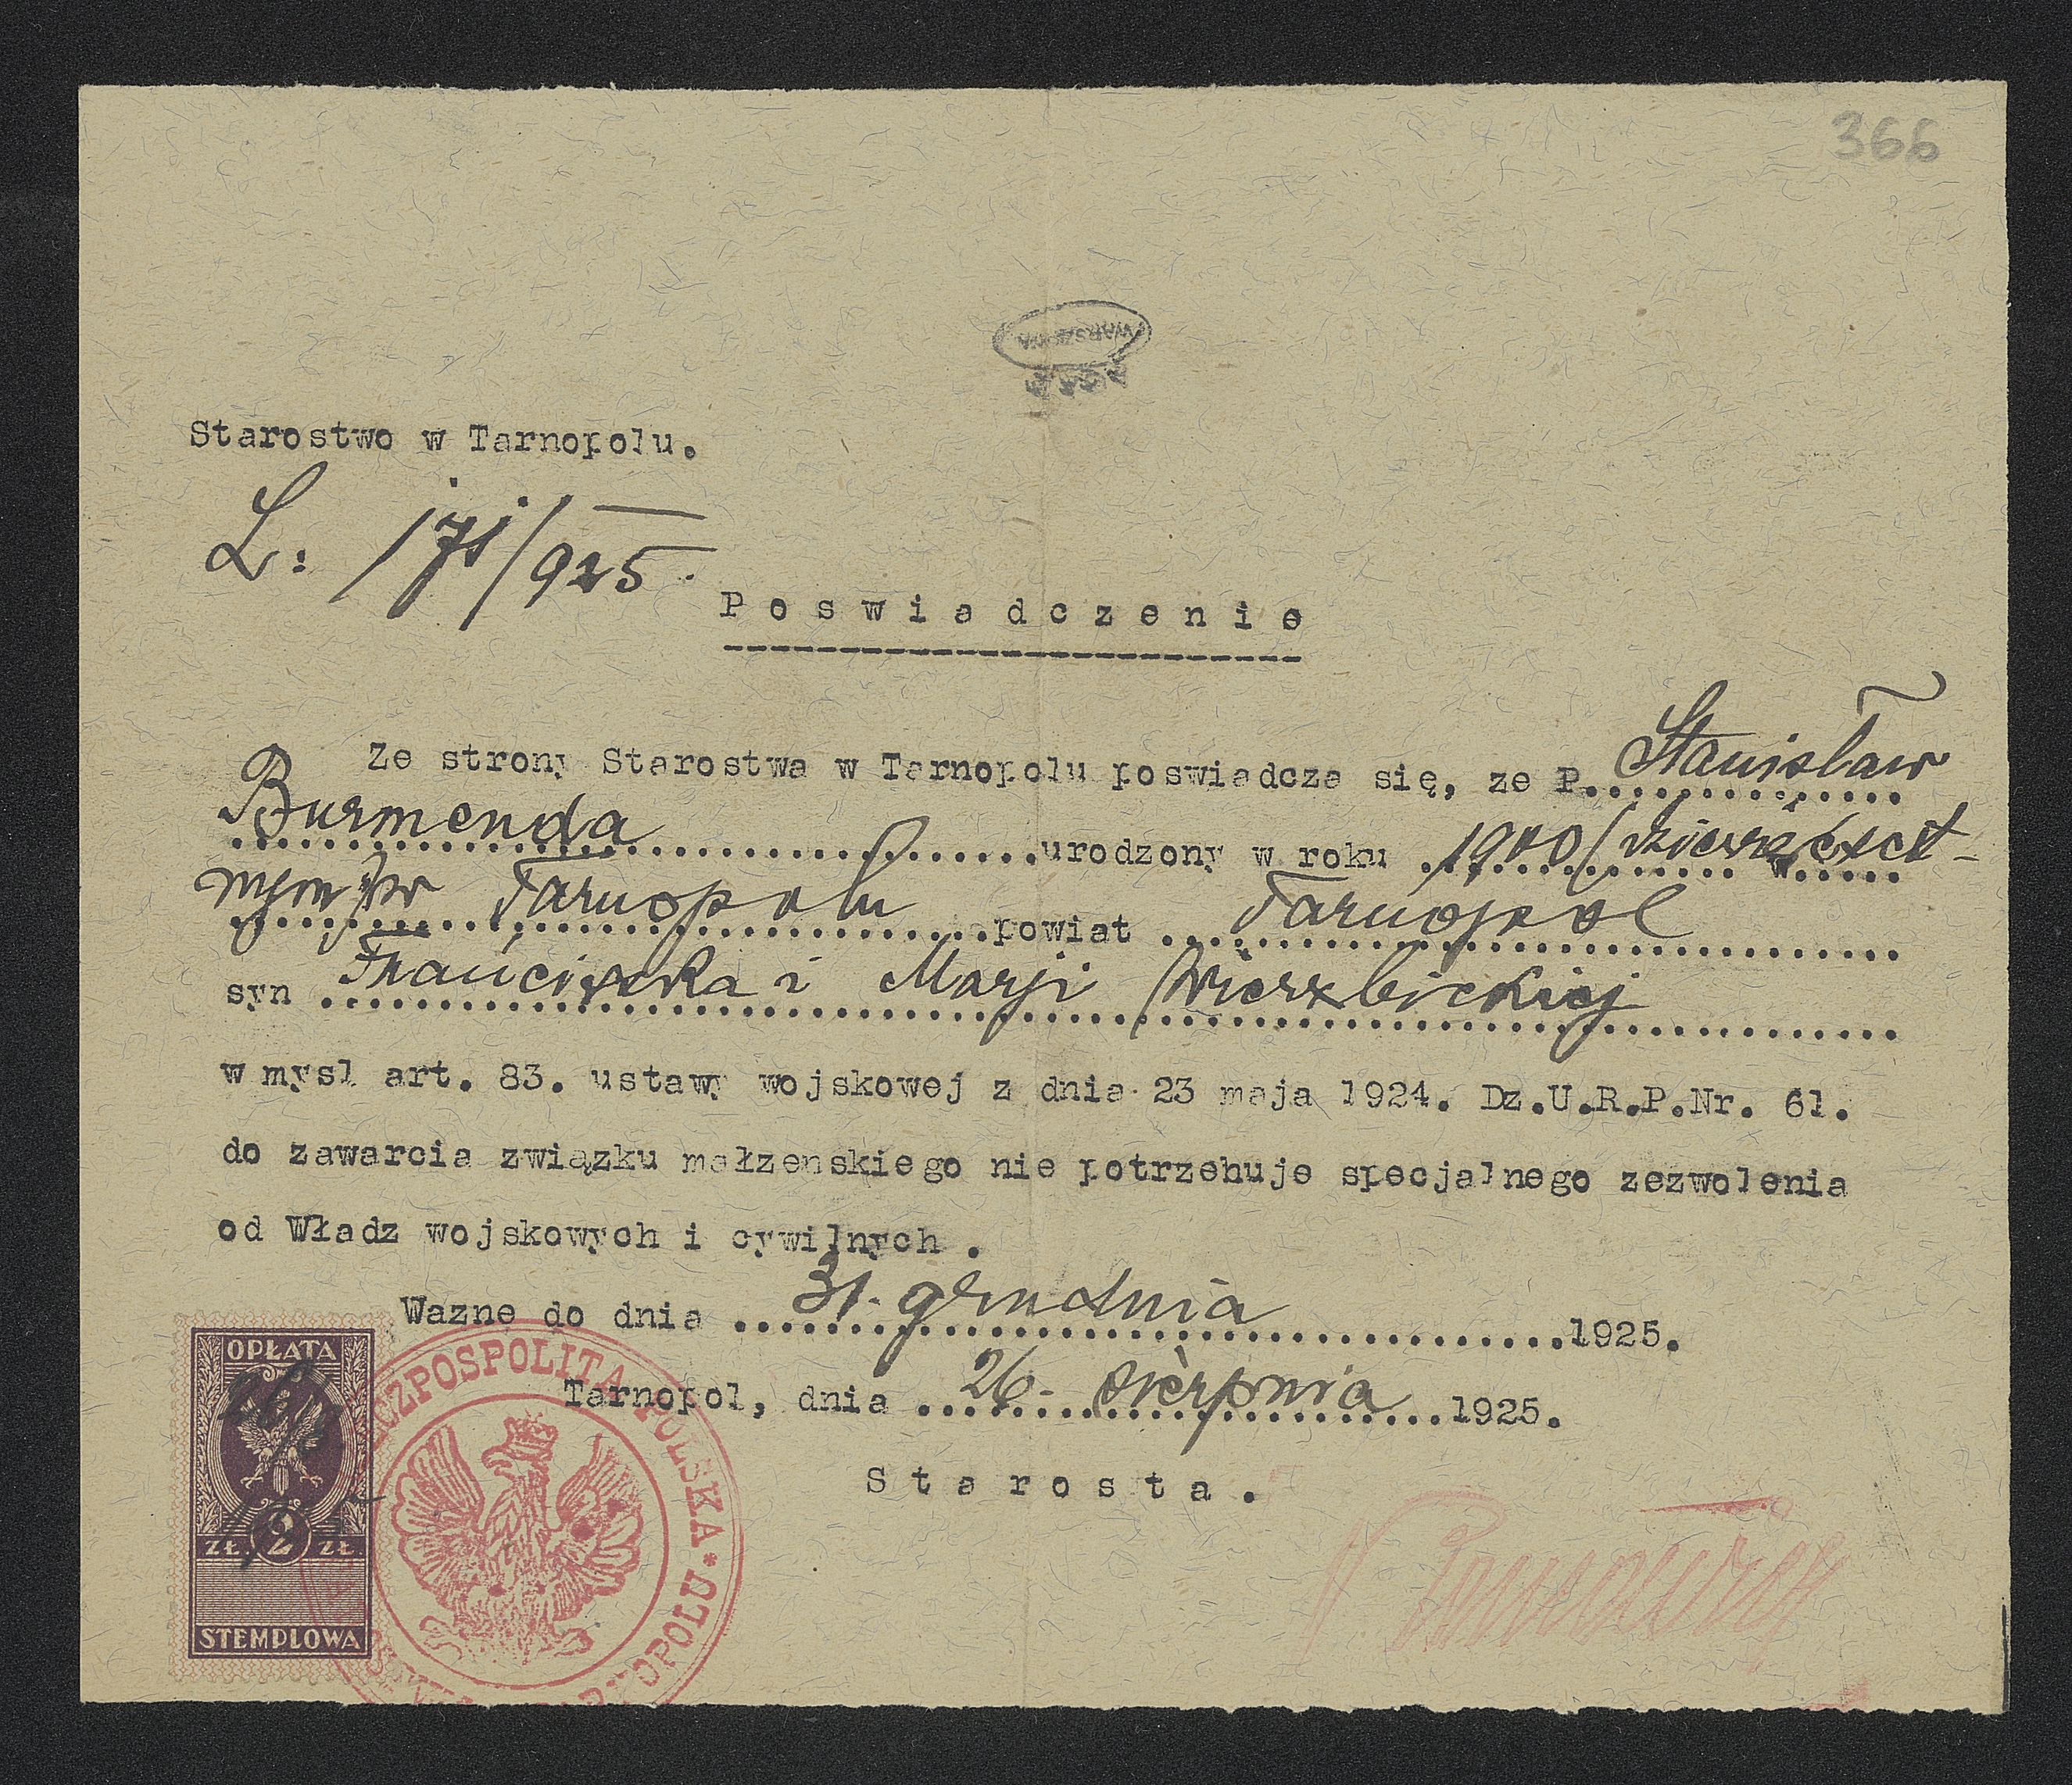 366
WARSZAWA
Starostwo w Tarnopolu.
L: 171/925.
Poswiadczenie
Ze strony Starostwa w Tarnopolu poswiadcza się, ze P. Stanisław
Burmenda urodzony w roku 1900/
w Tarnopolu powiat Tarnopol
syn Franciszka i Marji Wierzbickiej
w mysl art. 83. ustawy wojskowej z dnia 23 maja 1924. Dz.U.R.P.Nr. 61.
do zawarcia związku małzenskiego nie potrzebuje specjalnego zezwolenia
od Władz wojskowych i cywilnych .
Wazne do dnia 31. grudnia 1925.
Tarnopol, dnia 26. sierpnia 1925.
Starosta.
OPŁATA
ZŁ. 2 ZŁ.
STEMPLOWA
RZECZPOSPOLITA POLSKA * W TARNOPOLU